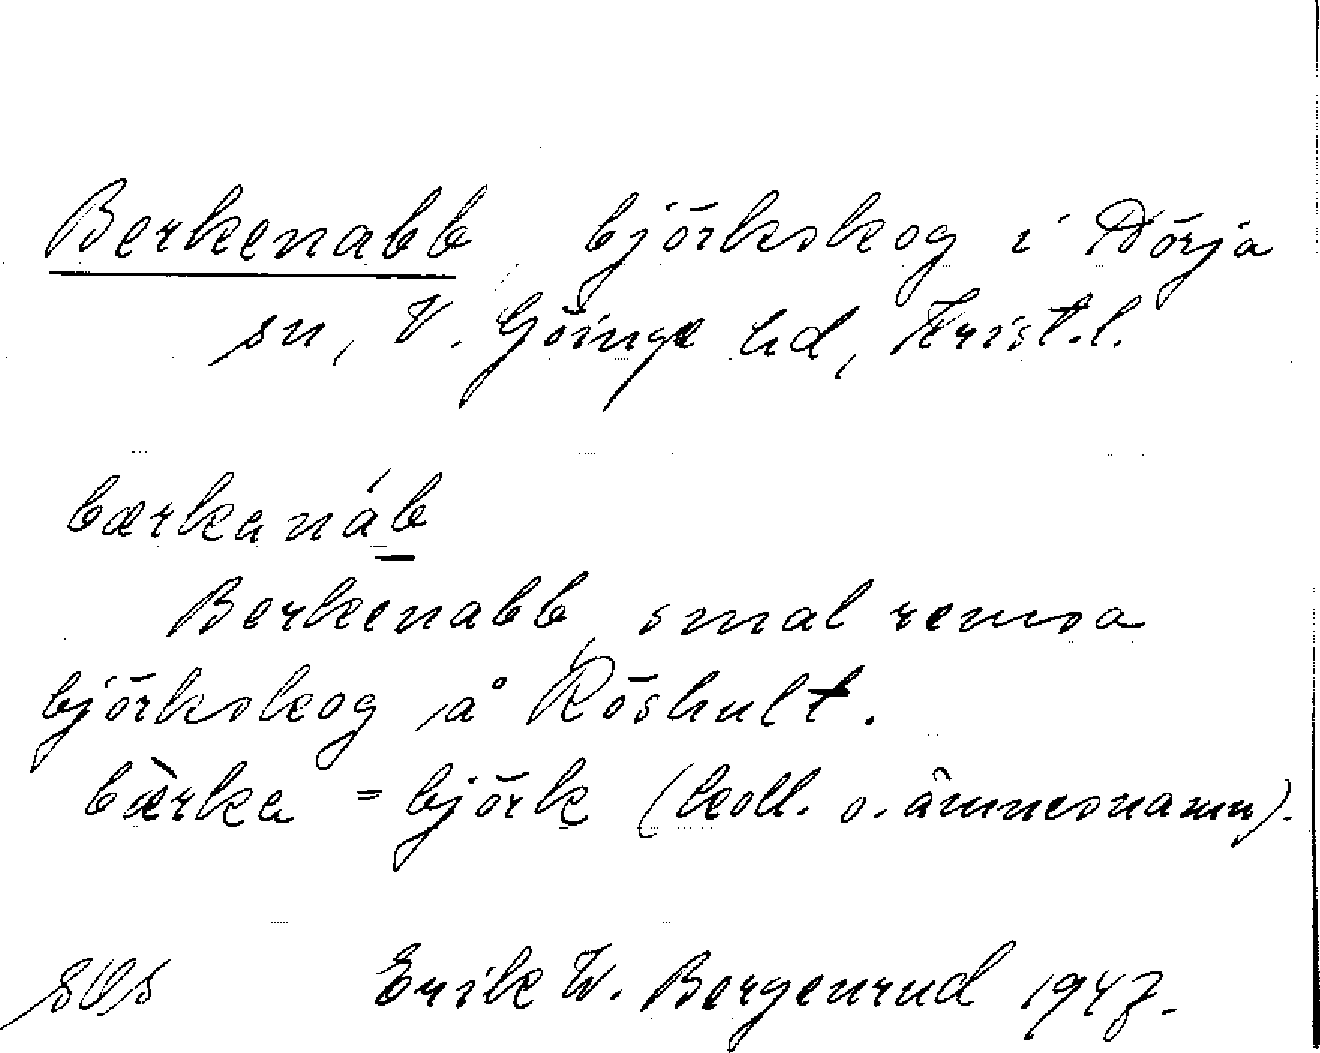 Berkenabb, björkskog i Nörja
sn, V. Göinge hd, Krist.l.
bærkanáb
Berkenabb, smal remsa
björkskog å Röshult.
bæ̀rka = björk (koll. o. ämnesnamn).
Erik W. Bergenrud 1947.